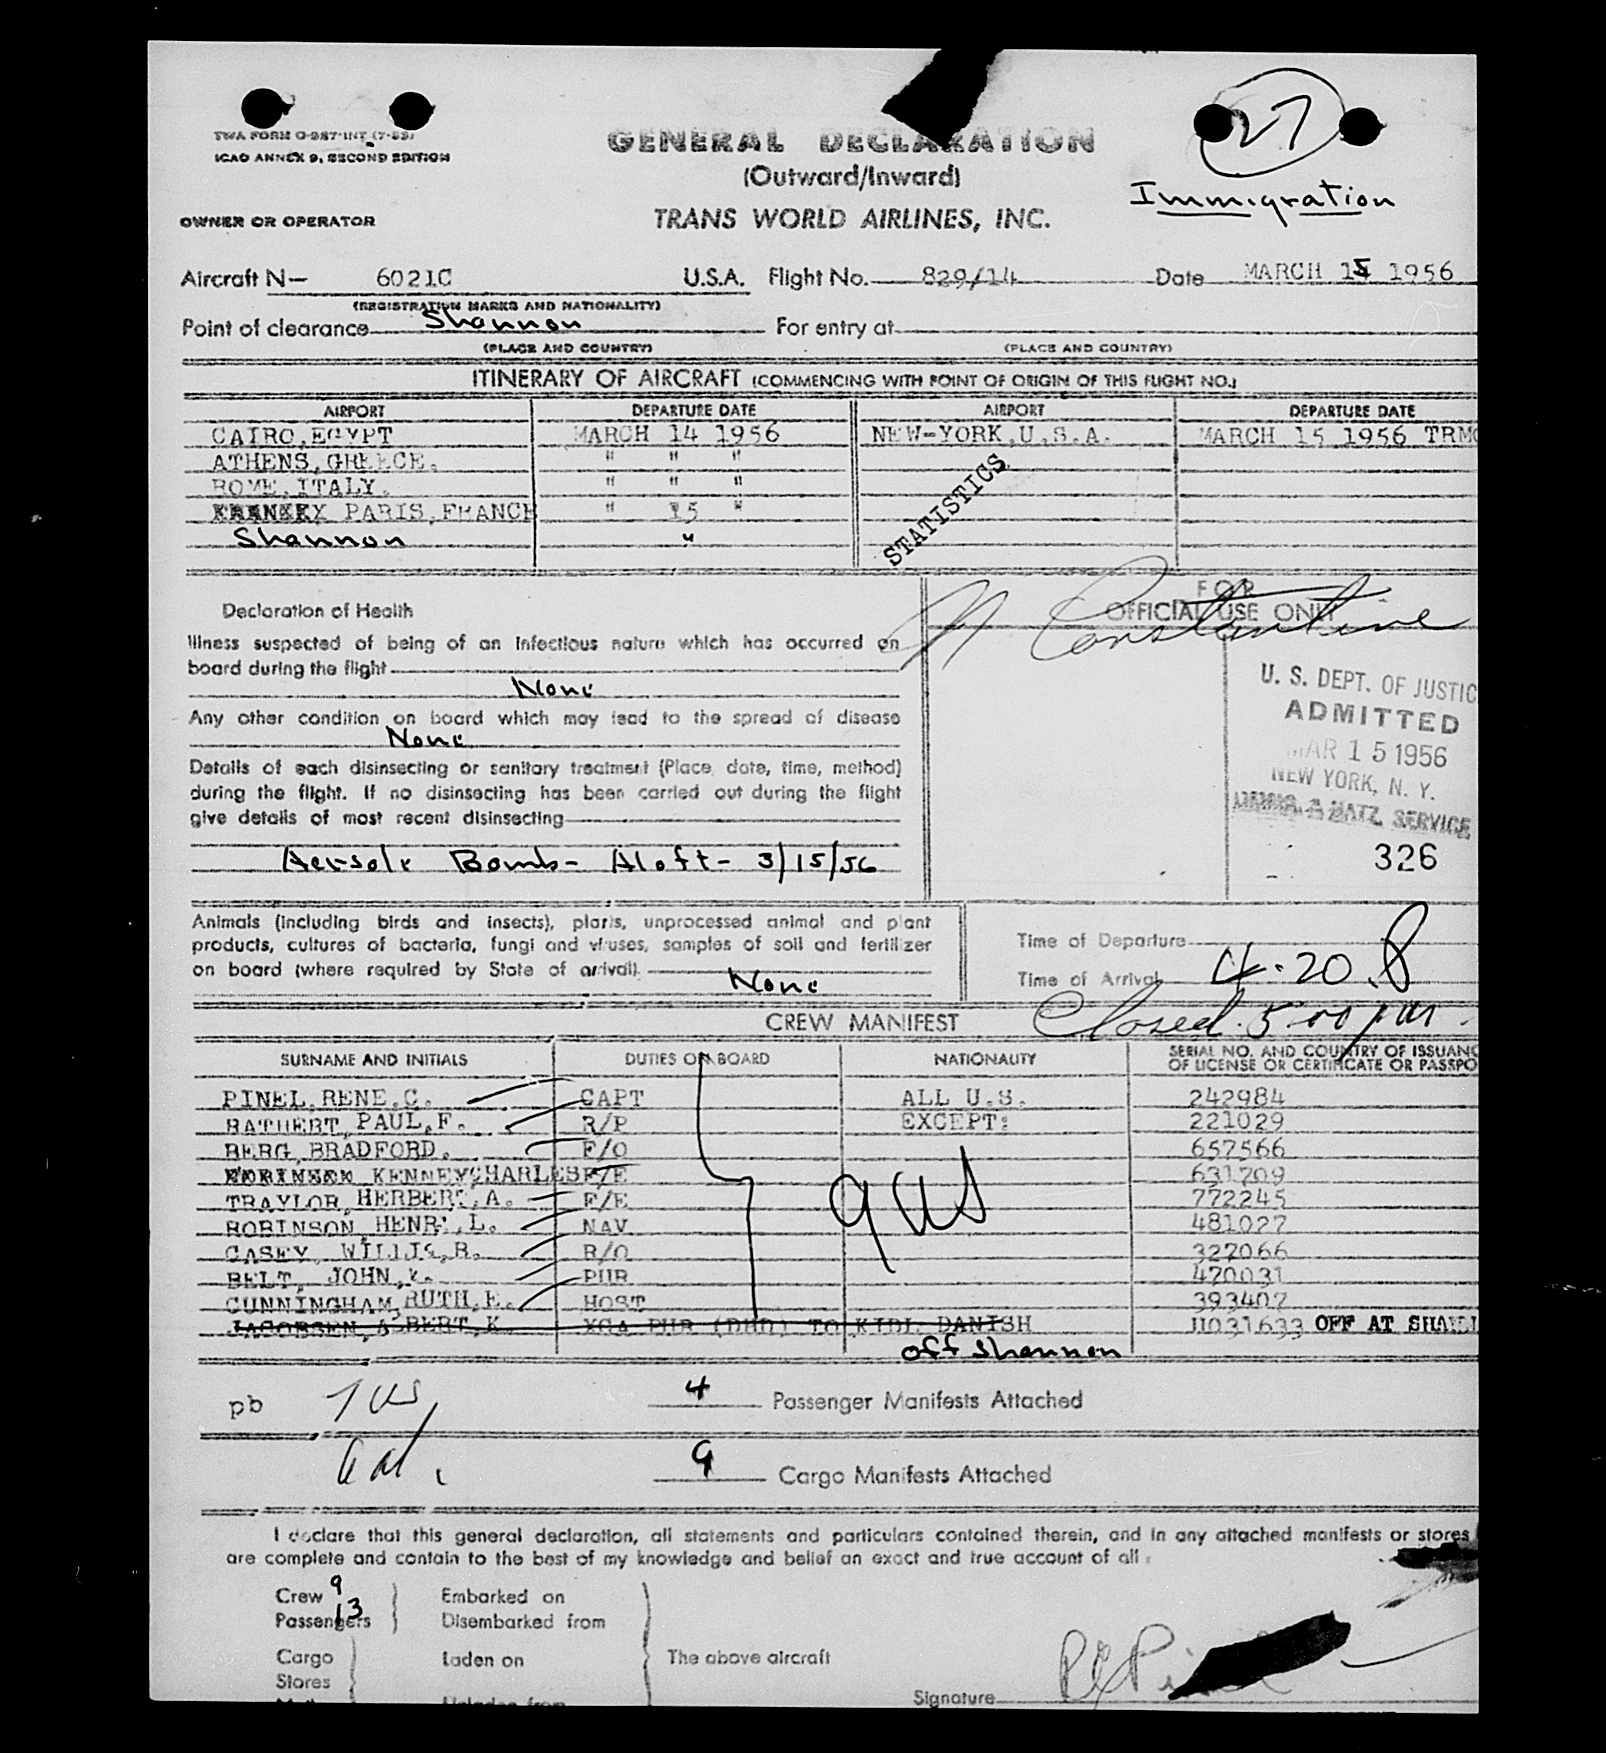 27
TWA FORM O-987-INT (7-53)
ICAO ANNEX 9, SECOND EDITION
GENERAL DECLARATION
(Outward/Inward)
Immigration
OWNER OR OPERATOR
TRANS WORLD AIRLINES, INC.
Aircraft N— 6021C U.S.A. Flight No. 829/14 Date MARCH 15 1956
(REGISTRATION MARKS AND NATIONALITY)
Point of clearance Shannon For entry at
(PLACE AND COUNTRY) (PLACE AND COUNTRY)
ITINERARY OF AIRCRAFT (COMMENCING WITH POINT OF ORIGIN OF THIS FLIGHT NO.)
AIRPORT DEPARTURE DATE AIRPORT DEPARTURE DATE
CAIRO,EGYPT MARCH 14 1956 NEW-YORK,U.S.A. MARCH 15 1956 TRM
ATHENS,GREECE. " " "
ROME,ITALY. " " "
PARIS,FRANCE " 15 "
Shannon "
STATISTICS
Declaration of Health
FOR
OFFICIAL USE ONLY
N Constantine
Illness suspected of being of an infectious nature which has occurred on
board during the flight
None
Any other condition on board which may lead to the spread of disease
None
Details of each disinsecting or sanitary treatment (Place, date, time, method)
during the flight. If no disinsecting has been carried out during the flight
give details of most recent disinsecting
Aersole Bomb- Aloft- 3/15/56
U. S. DEPT. OF JUSTIC
ADMITTED
MAR 15 1956
NEW YORK, N. Y.
IMMIG. & NATZ. SERVICE
326
Animals (including birds and insects), plants, unprocessed animal and plant
products, cultures of bacteria, fungi and viruses, samples of soil and fertilizer
on board (where required by State of arrival).
None
Time of Departure
Time of Arrival 4.20
Closed 5:00 pm
CREW MANIFEST
SURNAME AND INITIALS DUTIES ON BOARD NATIONALITY SERIAL NO. AND COUNTRY OF ISSUANC
OF LICENSE OR CERTIFICATE OR PASSPO
PINEL,RENE.C. CAPT ALL U.S. 242984
RATHERT,PAUL,F. R/P EXCEPT: 221029
BERG,BRADFORD. F/O 657566
KENNEY,CHARLES F/E 631709
TRAYLOR,HERBERT,A. F/E 772245
ROBINSON,HENRY,L. NAV 481027
CASEY, WILLIS,R. R/O 327066
BELT, JOHN,K. PUR 470031
CUNNINGHAM,RUTH,E. HOST 393407
JACOBSEN,ALBERT,K. XCA PUR (DHD) TO KIDL DANISH H031633 OFF AT SHANN
9 US
off Shannon
pb 7 US
4 Passenger Manifests Attached
6 al.
9 Cargo Manifests Attached
I declare that this general declaration, all statements and particulars contained therein, and in any attached manifests or stores
are complete and contain to the best of my knowledge and belief an exact and true account of all
Crew 9 Embarked on
Passengers 13 Disembarked from
Cargo Laden on The above aircraft
Stores
Signature